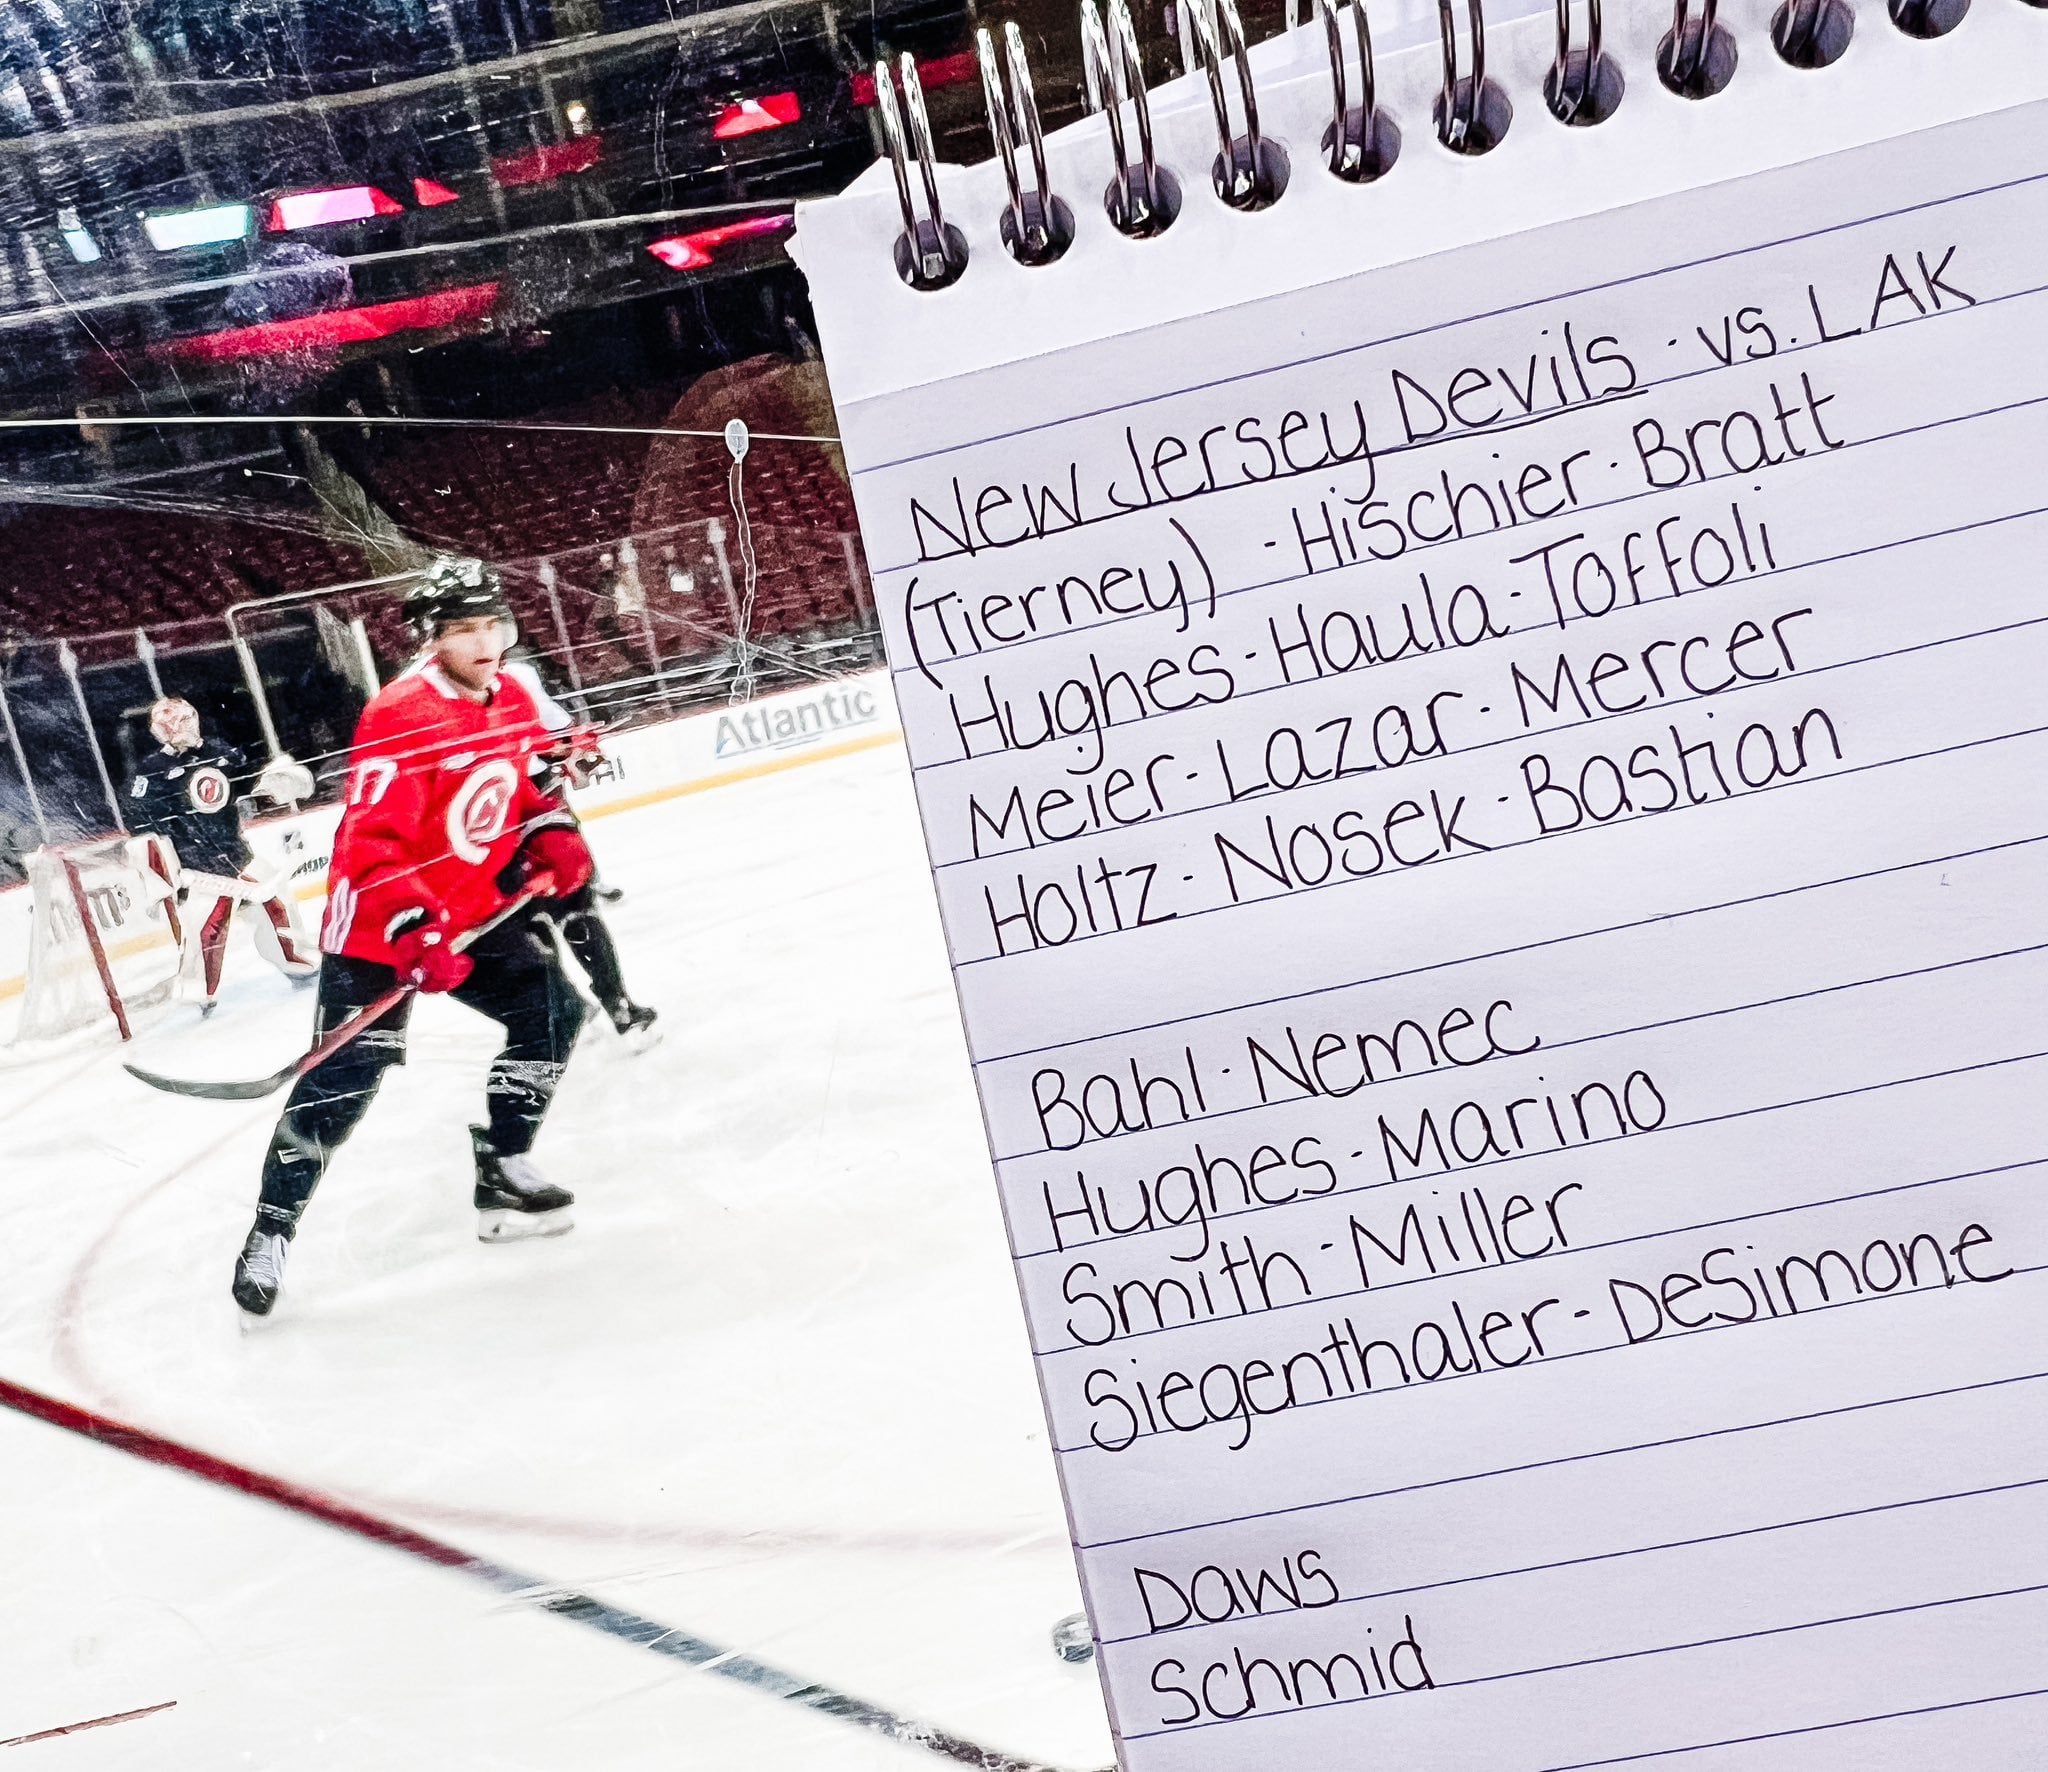 New Jersey Devils · vs. LAK
(Tierney) · Hischier · Bratt
Hughes · Haula · Toffoli
Meier · Lazar · Mercer
Holtz · Nosek · Bastian
Bahl · Nemec
Hughes · Marino
Smith · Miller
Siegenthaler · DeSimone
Daws
Schmid
Atlantic
17